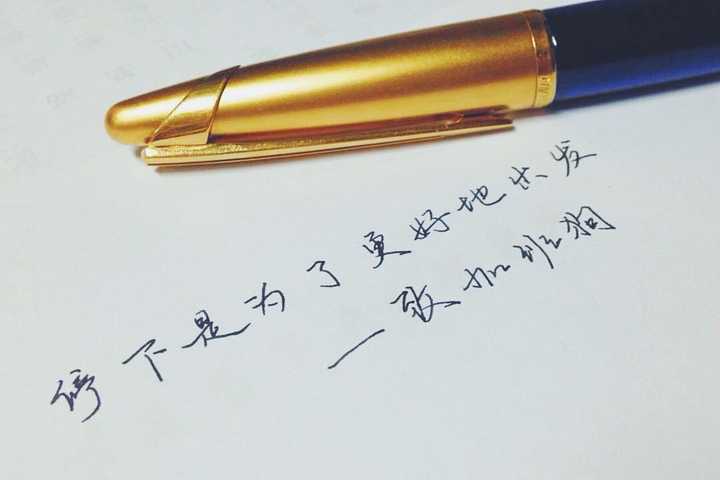 停下是为了更好地出发
一致加班狗